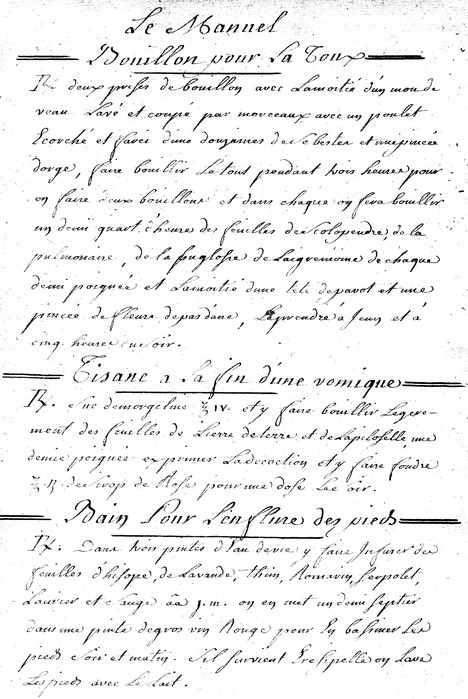 Le Manuel
Bouillon pour La Toux
℞ deux prises de bouillon avec Lamoitié d'un mou de
veau Lavé et coupé par morceaux avec un poulet
Ecorché et farci d'une douzaines de Sebestes et une pincée
d'orge, faire bouillir Le tout pendant trois heures pour
en faire deux bouillons et dans chaque on fera bouillir
un demii quart d'heures des feuilles de Scolopendre, de la
pulmonaire, de la Buglosse de Laigremoine de chaque
demi poignée et Lamoitié d'une tete de pavot et une
pincée de fleurs de pas d'ane, Le prendre a Jeun et à
cinq heures du soir.
Tisane a La fin d'une vomique
℞. Suc de morgeline ℥ IV. et y faire bouillir Legere-
ment des feuilles de Lierre de terre et de La piloselle, une
demie poignée exprimer La decoction et y faire fondre
℥ ß. de Sirop de Rose pour une dose Le soir.
Bain Pour L'enflure des pieds
℞. Dans trois pintes d'Eau de vie y faire Infuser des
feuilles d'hisope, de Lavande, thim, Romarin, Serpolet,
Laurier et Sauge āā j. m. on en met un demi Septier
dans une pinte de gros vin Rouge pour En bassiner Les
pieds Soir et matin. Sil survient Eresipelle on Lave
Les pieds avec Le Lait.